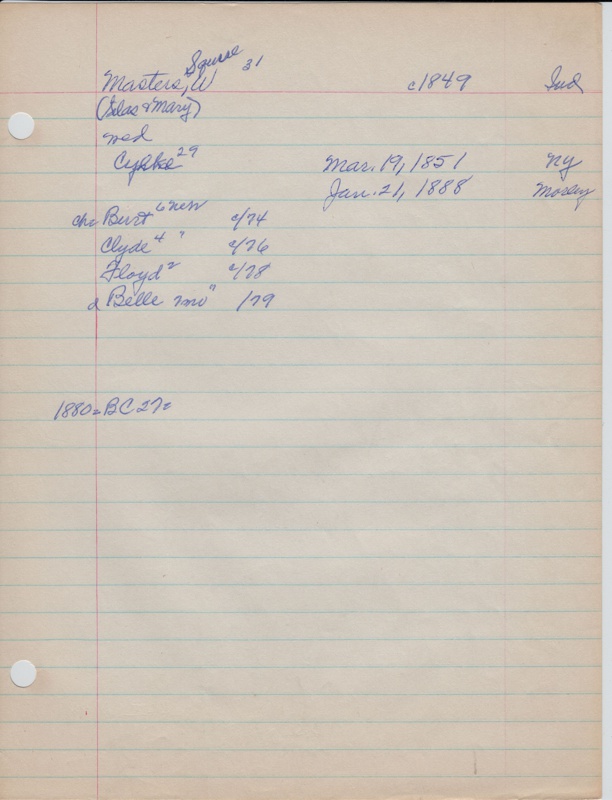 Squire
Masters, W 31 c1849 Ind
(Silas & Mary)
wed
29 Mar. 19, 1851 NY
Jan. 21, 1888 Morley
ch= Burt 6 c/74
Clyde 4 " c/76
Floyd 2 c/78
d Belle mo " /79
1880=BC 27=